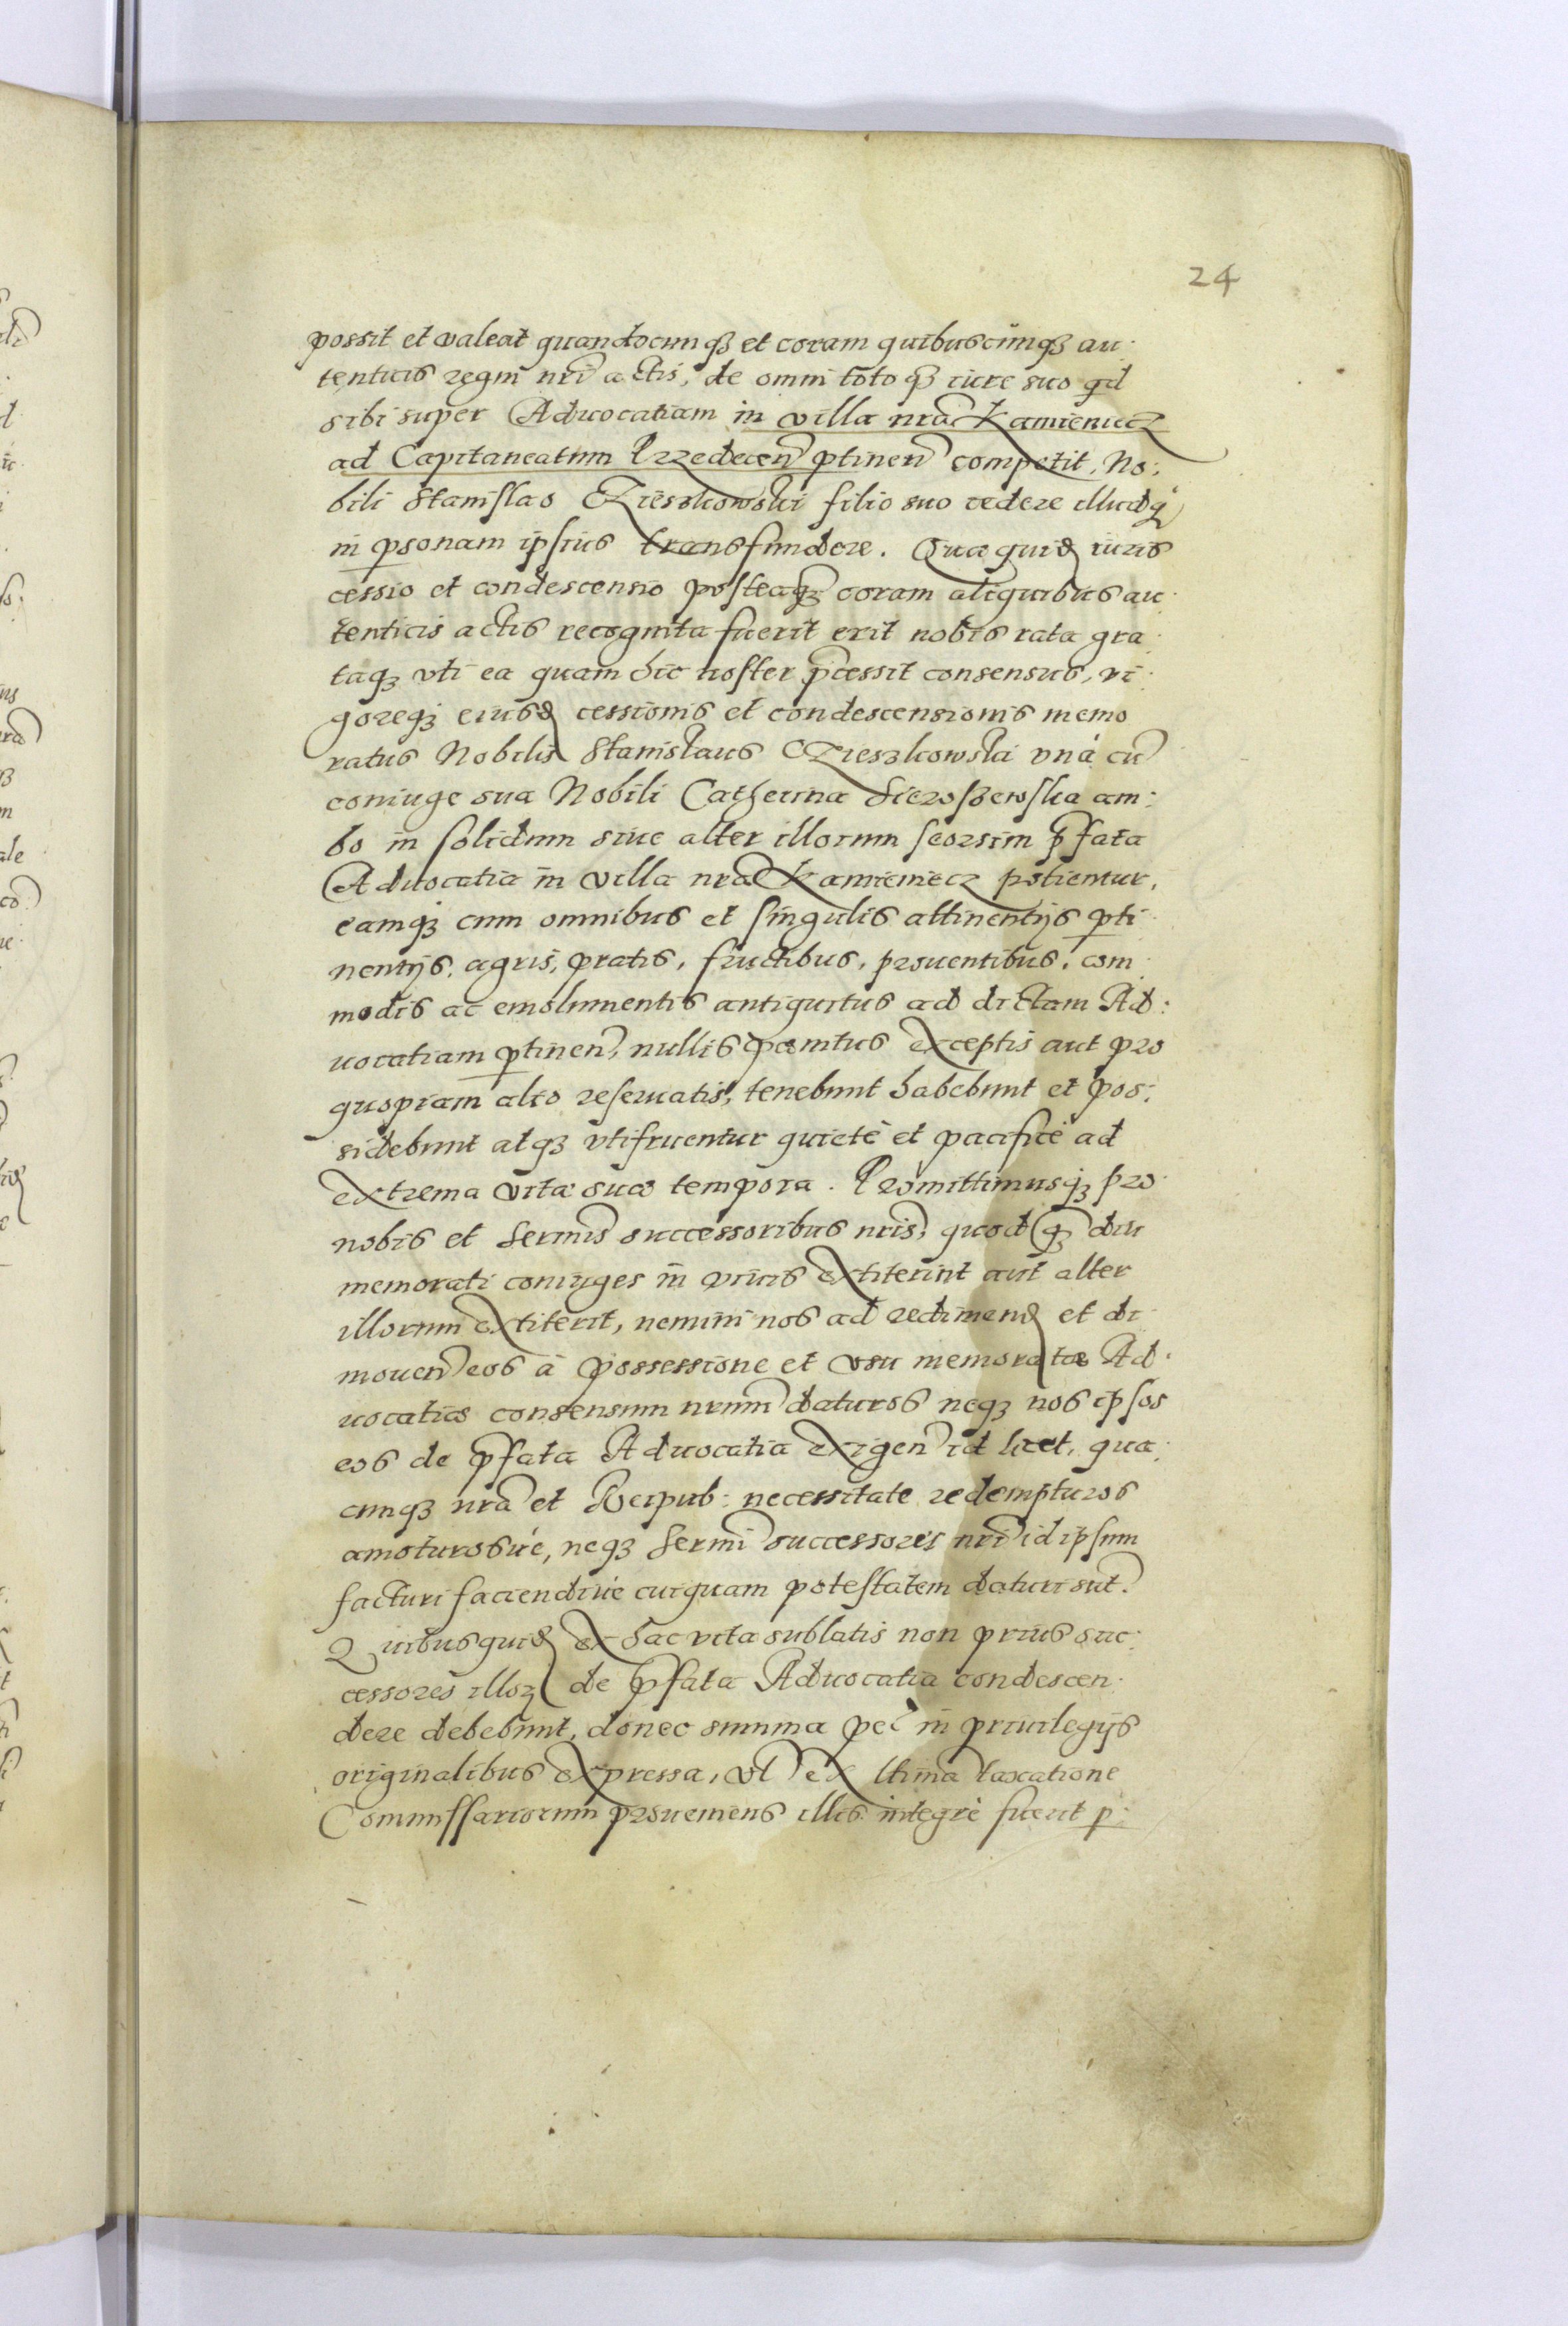 24
possit et valeat quandocunq3 et coram quibuscunq3 au:
tenticis regni nri actis, de omni totoq3 iure suo qd
sibi super Aduocatiam in villa nra Kamieniecz
ad Capitaneatum Przedecen ptinen competit, No:
bili Stanislao Czieszkowski filio suo cedere illudq3
in psonam ipsius transfundere. Quae quid iuris
cessio et condescensio posteaq3 coram aliquibus au:
tenticis actis recognita fuerit erit nobis rata gra:
taq3 vti ea quam hic noster pcessit consensus, vi:
goreq3 eiusd cessionis et condescensionis memo
ratus Nobilis Stanislaus Czieszkowski vnà cu
coniuge sua Nobili Catherina Sieroszewska am:
bo in solidum siue alter illorum seorsim pfata
Aduocatia in villa nra Kamieniecz potientur,
eamq3 cum omnibus et singulis attinentijs pti:
nentijs, agris, pratis, fructibus, prouentibus, com:
modis ac emolumentis antiquitus ad dictam Ad:
uocatiam ptinen, nullis paenitus exceptis aut pro
quopiam alio reseruatis, tenebunt habebunt et pos:
sidebunt atq3 vtifruentur quietè et pacificè ad
extrema vitae suae tempora. Promittimusq3 pro
nobis et sermis successoribus nris, quod q3 diu
memorati coniuges in viuis extiterint aut alter
illorum extiterit, nemini nos ad redimend et di:
mouen eos à possessione et vsu memoratae Ad:
uocatiae consensum nrum daturos neq3 nos ipsos
eos de pfata Aduocatia exigen id licet, qua:
cunq3 nra et Reipub: necessitate redempturos
amoturosue, neq3 sermi successores nri id ipsum
facturi faciendiue cuiquam potestatem daturi sut.
Quibus quid ex hac vita sublatis non prius suc:
cessores illor de pfata Aduocatia condescen:
dere debebunt, donec summa pec in priuilegijs
originalibus expressa, vl ex ltima taxatione
Commissariorum proueniens illis integrè fuerit p: